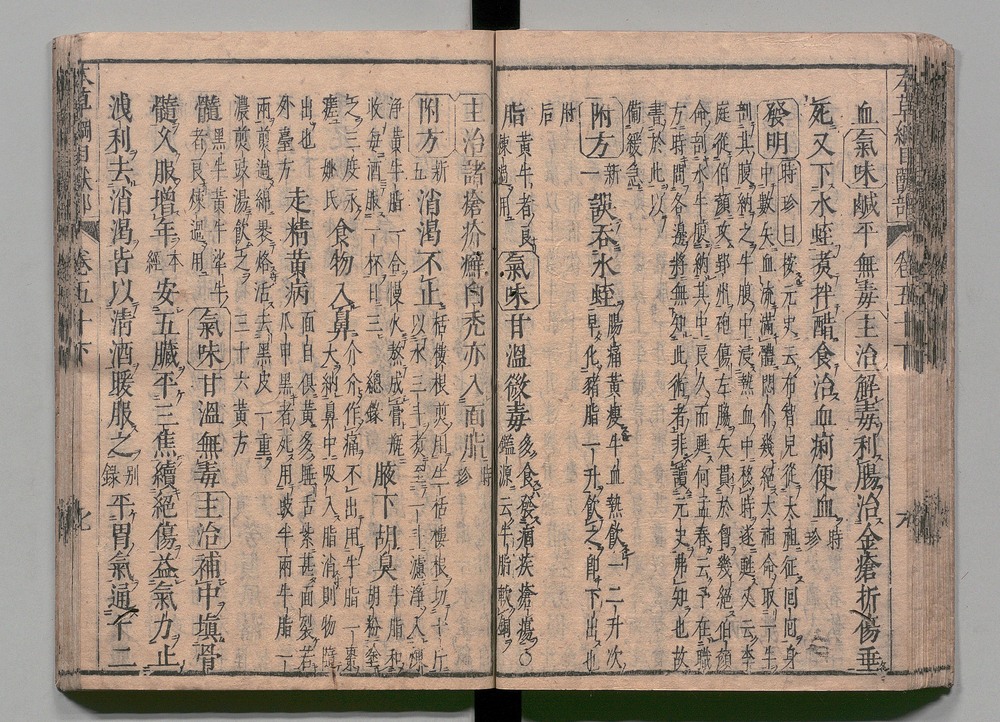 血氣味鹹平無毒主治解毒利腸治金瘡折傷垂
死又下水蛭煑拌醋食治血痢便血時珍
發明時珍曰按元史云布智兒從太祖征回回身
中數矢血流滿體悶仆幾絕太祖命取一牛
剖其腹納之牛腹中浸熱血中移時遂甦又云李
庭從伯顏攻郢州砲傷左脇矢貫於胷幾絕伯顏
命剖水牛腹納其中良久而甦何孟春云予在職
方時問各邊將無知此術者非讀元史弗知也故
書於此以
備緩急
附方新一誤吞水蛭腸痛黃瘦牛血熱飲一二升次
早化豬脂一升飲之卽下出也
肘后
脂黃牛者良煉過用氣味甘溫微毒多食發痼疾瘡瘍○鑑源云牛脂軟銅
主治諸瘡疥癬白禿亦入面脂時珍
附方新五消渴不止以栝樓根煎用生栝樓根切十斤
以水三斗煑至一斗濾淨入煉
淨黃牛脂一合慢火熬成膏瓶
收每酒服一杯日三總錄腋下胡臭胡粉牛脂和
塗
之三度永
瘥姚氏食物入鼻介介作痛不出用牛脂一棗
大納鼻中吸入脂消則物隨
出也
外臺方走精黃病面目俱黃多睡舌紫甚面裂若
爪甲黑者死用豉半兩牛脂一
兩煎過綿裹烙舌去黑皮一重
濃煎豉湯飲之三十六黃方
髓黑牛黃牛牸牛者良煉過用氣味甘溫無毒主治補中塡骨
髓久服增年本經安五臟平三焦續絕傷益氣力止
洩利去消渴皆以清酒暖服之別錄平胃氣通十二
本草綱目獸部
卷五十下
六
本草綱目獸部
卷五十下
七